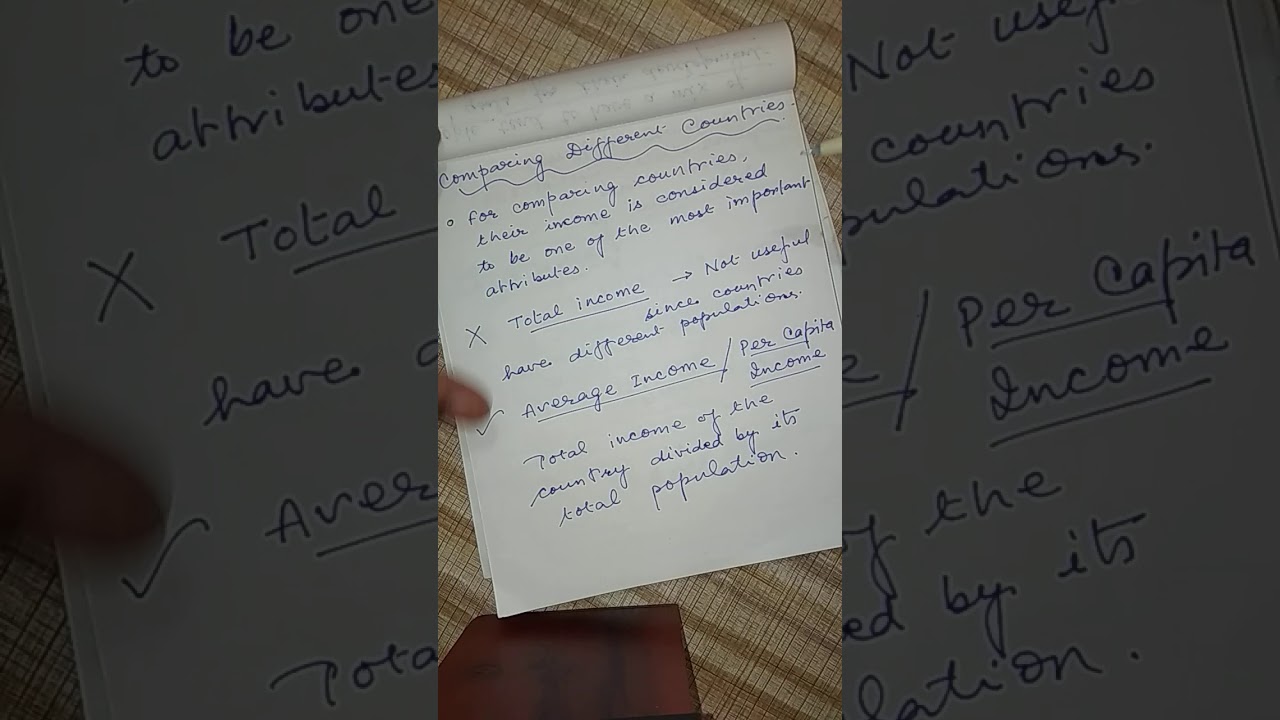 Comparing Different Countries.
• For comparing countries,
their income is considered
to be one of the most important
attributes.
X Total income → Not useful
since countries
have different populations.
✓ Average Income / Per Capita
Income
Total income of the
country divided by its
total population.